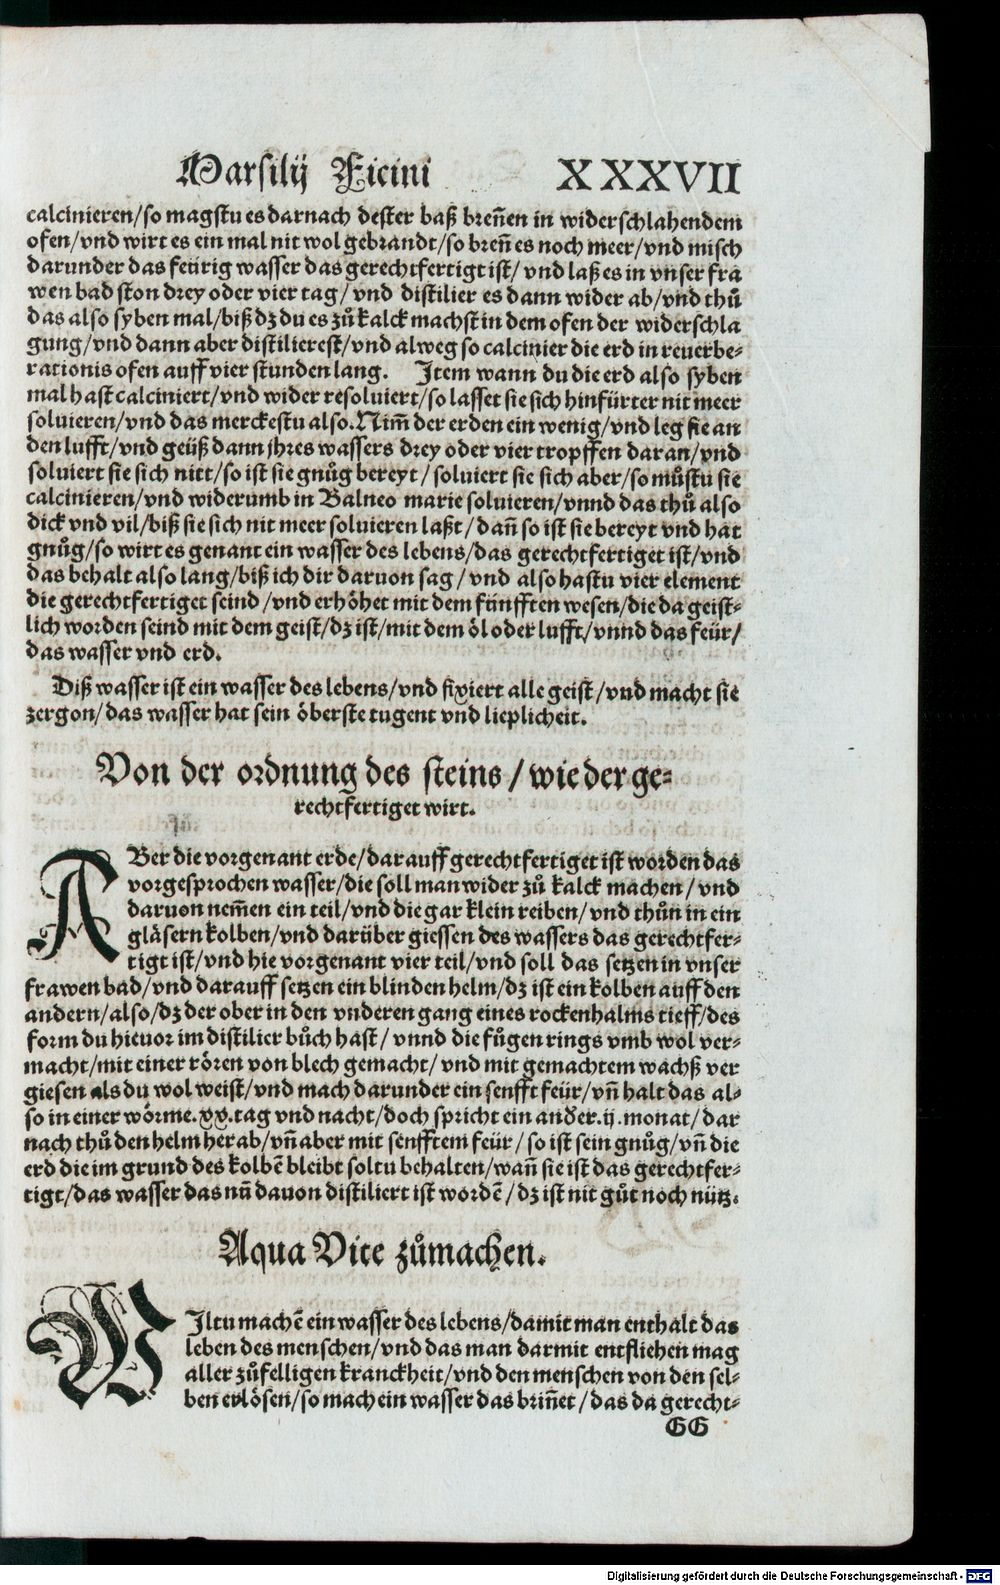 Marsilij Ficini XXXVII
calcinieren/so magstu es darnach dester baß breñen in widerschlahendem
ofen/vnd wirt es ein mal nit wol gebrandt/so breñ es noch meer/vnd misch
darunder das feürig wasser das gerechtfertigt ist/ vnd laß es in vnser fra
wen bad ston drey oder vier tag/ vnd distilier es dann wider ab/vnd thů
das also syben mal/biß dz du es zů kalck machst in dem ofen der widerschla
gung/vnd dann aber distilierest/vnd alweg so calcinier die erd in reuerbe-
rationis ofen auff vier stunden lang. Item wann du die erd also syben
mal hast calciniert/vnd wider resoluiert/so lasset sie sich hinfürter nit meer
soluieren/vnd das merckestu also. Nim̃ der erden ein wenig/vnd leg sie an
den lufft/vnd geüß dann jhres wassers drey oder vier tropffen daran/vnd
soluiert sie sich nitt/so ist sie gnůg bereyt/ soluiert sie sich aber/so můstu sie
calcinieren/vnd widerumb in Balneo marie soluieren/vnnd das thů also
dick vnd vil/biß sie sich nit meer soluieren laßt/ dañ so ist sie bereyt vnd hat
gnůg/so wirt es genant ein wasser des lebens/das gerechtfertiget ist/vnd
das behalt also lang/biß ich dir daruon sag/ vnd also hastu vier element
die gerechtfertiget seind/vnd erhöhet mit dem fünfften wesen/die da geist-
lich worden seind mit dem geist/dz ist/mit dem öl oder lufft/vnnd das feür/
das wasser vnd erd.
Diß wasser ist ein wasser des lebens/vnd fixiert alle geist/vnd macht sie
zergon/das wasser hat sein öberste tugent vnd lieplicheit.
Von der ordnung des steins/wie der ge-
rechtfertiget wirt.
ABer die vorgenant erde/darauff gerechtfertiget ist worden das
vorgesprochen wasser/die soll man wider zů kalck machen/ vnd
daruon nem̃en ein teil/vnd die gar klein reiben/vnd thůn in ein
gläsern kolben/vnd darüber giessen des wassers das gerechtfer-
tigt ist/vnd hie vorgenant vier teil/vnd soll das setzen in vnser
frawen bad/vnd darauff setzen ein blinden helm/dz ist ein kolben auff den
andern/also/dz der ober in den vnderen gang eines rockenhalms tieff/des
form du hieuor im distilier bůch hast/ vnnd die fůgen rings vmb wol ver-
macht/mit einer rören von blech gemacht/ vnd mit gemachtem wachß ver
giesen als du wol weist/vnd mach darunder ein senfft feür/ vñ halt das al-
so in einer wörme.xx.tag vnd nacht/doch spricht ein ander.ij.monat/dar
nach thů den helm herab/vñ aber mit senfftem feür/ so ist sein gnůg/vñ die
erd die im grund des kolbē bleibt soltu behalten/wañ sie ist das gerechtfer-
tigt/das wasser das nũ dauon distiliert ist wordē/dz ist nit gůt noch nütz.
Aqua Vite zůmachen.
WIltu machē ein wasser des lebens/damit man enthalt das
leben des menschen/vnd das man darmit entfliehen mag
aller zůfelligen kranckheit/vnd den menschen von den sel-
ben erlösen/so mach ein wasser das briñet/das da gerecht-
GG
Digitalisierung gefördert durch die Deutsche Forschungsgemeinschaft - DFG